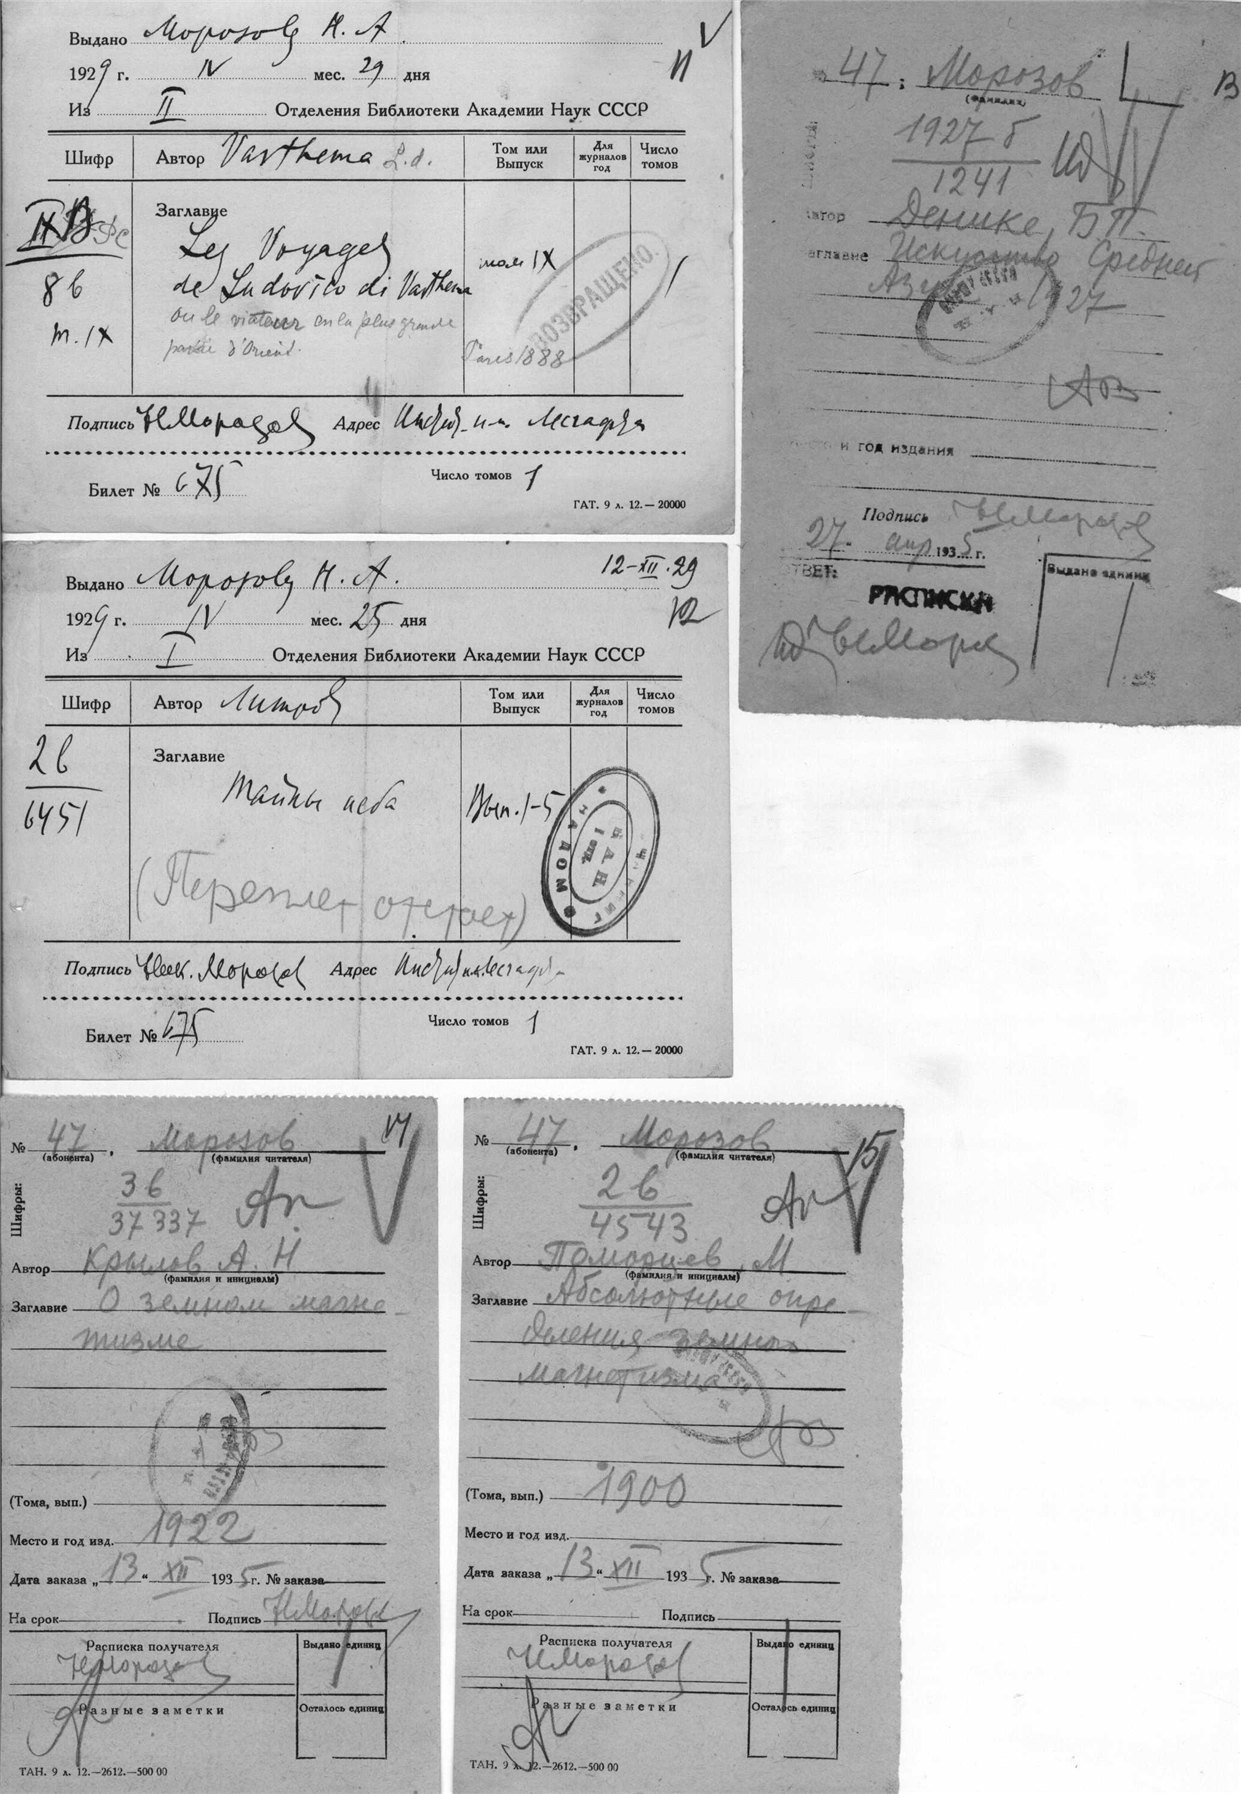 Выдано Морозову Н. А.
11
1929 г. IV мес. 29 дня
Из II Отделения Библиотеки Академии Наук СССР
Шифр
Автор Varthema L. d.
Том или Выпуск
Для журналов год
Число томов
IX В
8 б
т. IX
Заглавие
Les Voyages
de Ludovico di Varthema
ou le viateur en la plus grande
partie d'Orient.
том IX
Paris 1888
1
ВОЗВРАЩЕНО.
Подпись Н Морозов Адрес
Билет № 675
Число томов 1
ГАТ. 9 л. 12.— 20000
Выдано Морозову Н. А.
12-XII.29
12
1929 г. IV мес. 25 дня
Из I Отделения Библиотеки Академии Наук СССР
Шифр
Автор Литров
Том или Выпуск
Для журналов год
Число томов
2 б
6451
Заглавие
Тайны неба
Вып. 1-5
(Переплет отстает)
НА ДОМ
Б.А.Н.
I отд.
Подпись Ник. Морозов Адрес
Билет № 675
Число томов 1
ГАТ. 9 л. 12.— 20000
47 ; Морозов
(фамилия)
13
1927 б
1241
Автор Денике, Б П.
Заглавие Искусство Средней
Азии 1927
и год издания
Подпись Н Морозов
27 апр 1935 г.
ОТВЕТ:
Выдано единиц
РАСПИСКА
Н Мороз
№ 47, Морозов
14
(абонента) (фамилия читателя)
Шифры:
3 б
37 337
Автор Крылов А. Н
(фамилия и инициалы)
Заглавие О земном магне-
тизме
(Тома, вып.)
Место и год изд. 1922
Дата заказа „13“ XII 1935 г. № заказа
На срок Подпись Н Мороз
Расписка получателя
Н Морозов
Выдано единиц
1
Разные заметки
Осталось единиц
ТАН. 9 л. 12.—2612.—500 00
№ 47, Морозов
15
(абонента) (фамилия читателя)
Шифры:
2 б
4543
Автор Поморцев, М
(фамилия и инициалы)
Заглавие Абсолютные опре-
деления земного
магнетизма
(Тома, вып.) 1900
Место и год изд.
Дата заказа „13“ XII 1935 г. № заказа
На срок Подпись
Расписка получателя
Н Морозов
Выдано единиц
1
Разные заметки
Осталось единиц
ТАН. 9 л. 12.—2612.—500 00